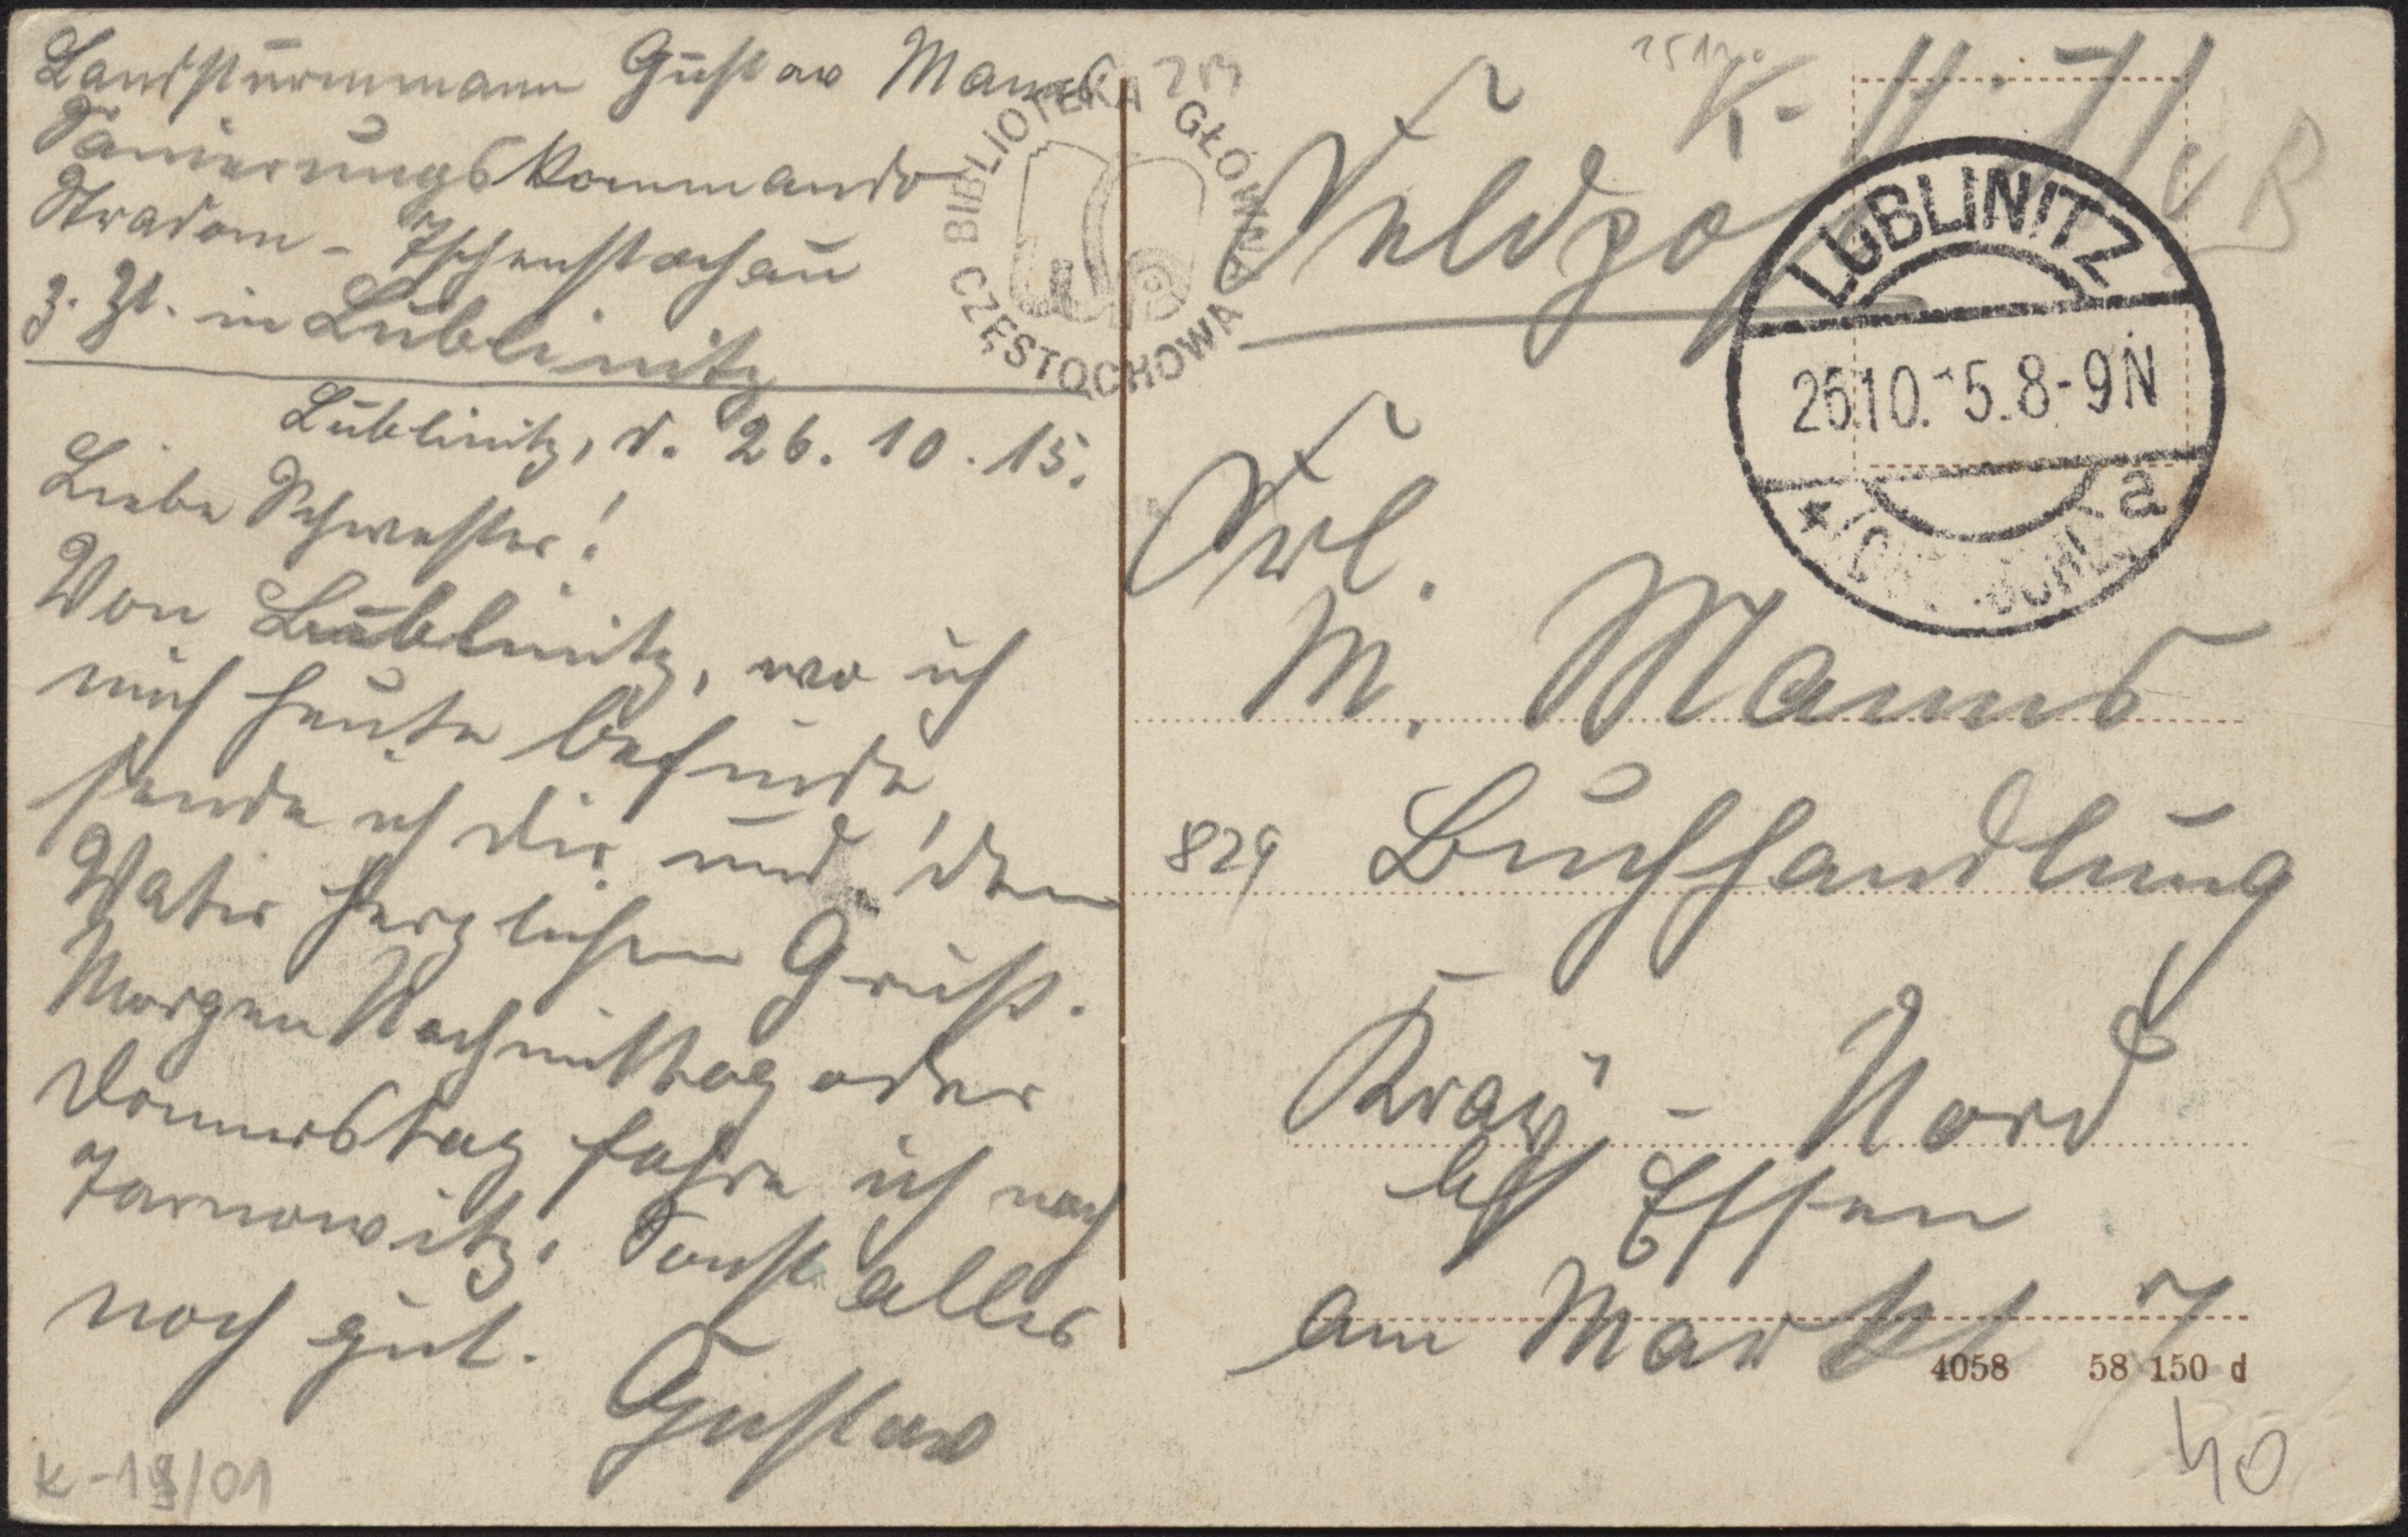 Landsturmmann Gustav Manns
Sanierungskommando
Stradom - Tschenstochau
z. Zt. in Lublinitz
Lublinitz, d. 26.10.15.
Liebe Schwester!
Von Lublinitz, wo ich
mich heute befinde,
sende ich dir und dem
Vater herzlichen Gruß.
Morgen Nachmittag oder
Donnerstag fahre ich nach
Tarnowitz. Sonst alles
noch gut.
Gustav
K-18/01
BIBLIOTEKA GŁÓWNA
CZĘSTOCHOWA
Feldpost
LUBLINITZ
26.10.15.8-9N
* a
Frl.
M. Manns
829 Buchhandlung
Kray - Nord
bei Essen
am Markt 7
4058 58 150 d
40